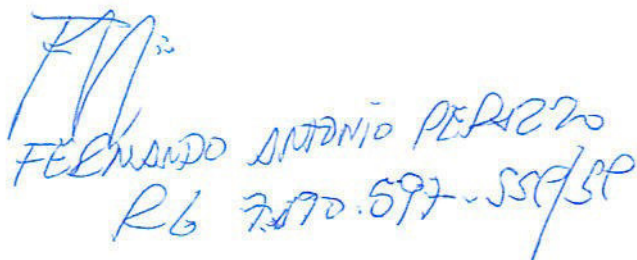 FERNANDO ANTONIO PERAZZO
RG 7.890.597-SSP/SP